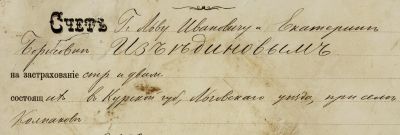 Счетъ Г. Льву Ивановичу и Екатеринѣ
Изъѣдиновымъ
на застрахованіе стр. и движ.
состоящихъ въ Курской губ, Льговскаго уѣзда, при селѣ
Колпаковѣ